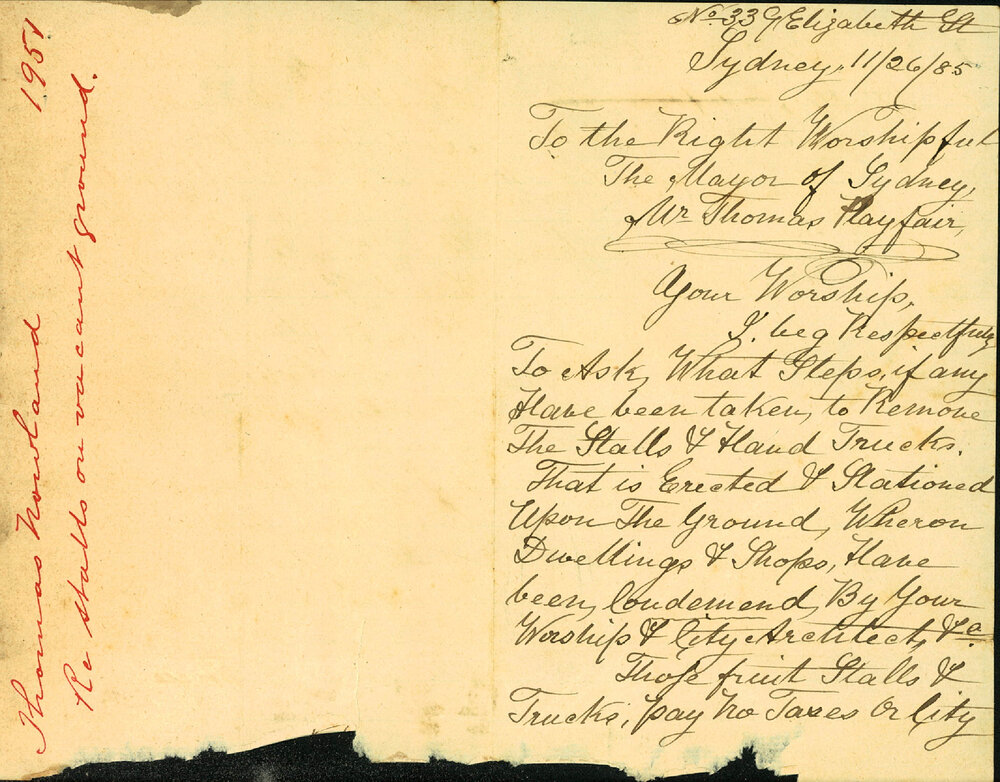 Thomas Rowland 1951
Re stalls on vacant ground.
No 339 Elizabeth St
Sydney, 11/26/85
To the Right Worshipful
The Mayor of Sydney,
Mr Thomas Playfair,
Your Worship,
I. beg Respectfully
To Ask, What Steps, if any
Have been taken, to Remove
The Stalls & Hand Trucks.
That is Erected & Stationed
Upon The Ground, Wheron
Dwellings & Shops, Have
been, Condemend, By Your
Worship & City Architect, &c.
Those fruit Stalls &
Trucks, pay No Taxes Or City